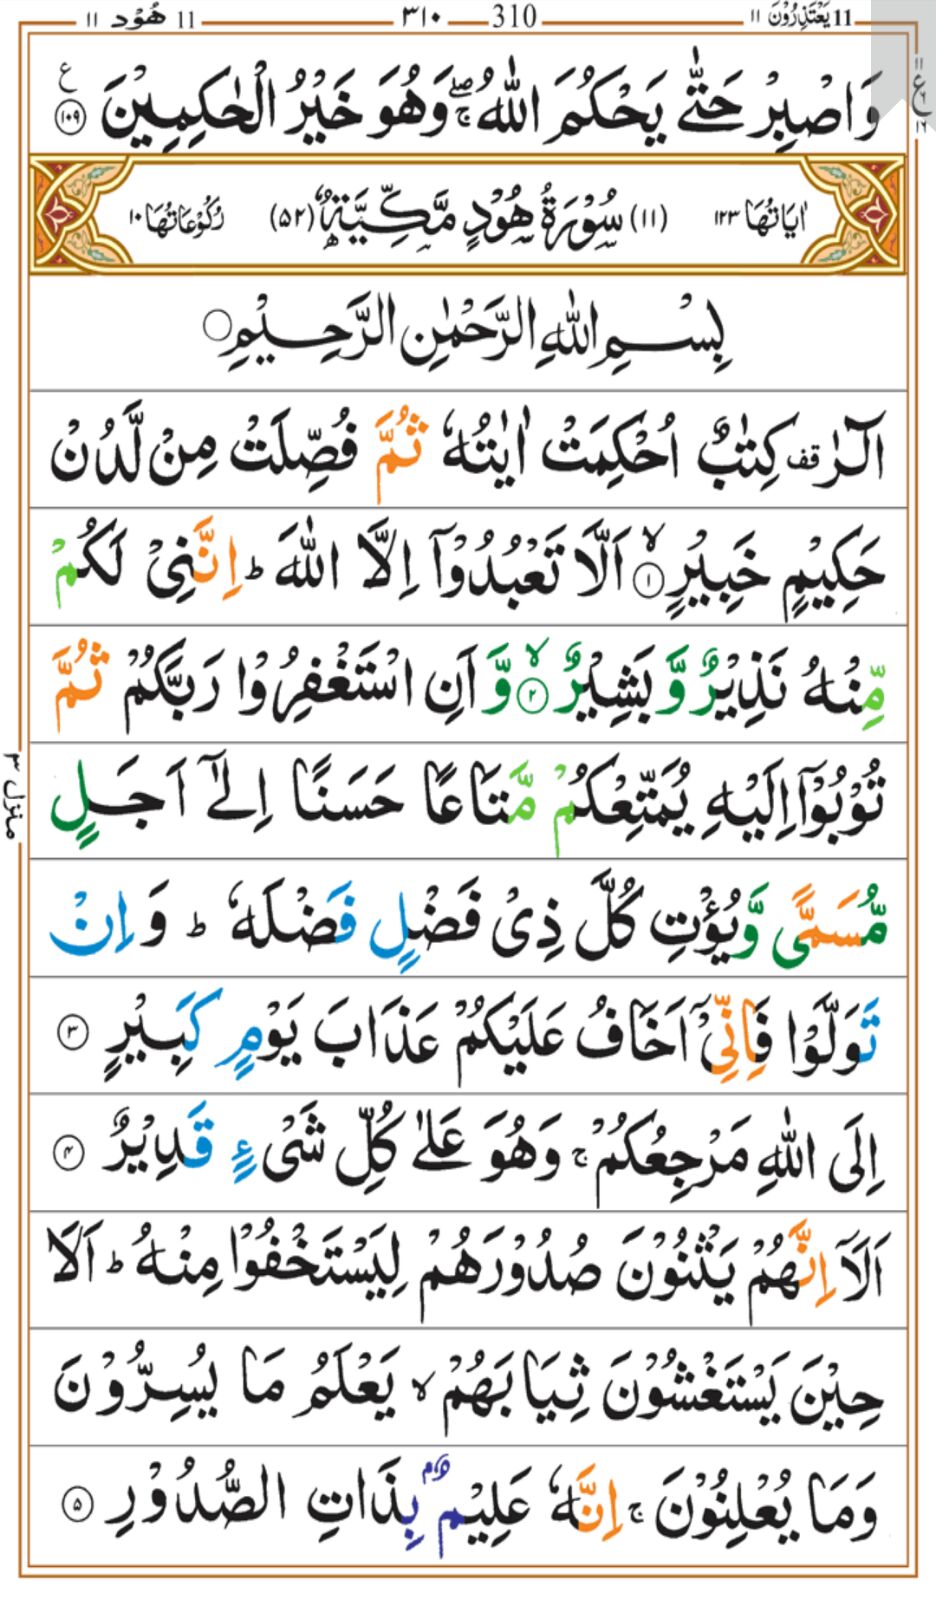 11 يَعْتَذِرُوْنَ ١١ ٣١٠ 310 11 هُوْد ١١
وَاصْبِرْ حَتّٰى يَحْكُمَ اللّٰهُ ۖۚ وَهُوَ خَيْرُ الْحٰكِمِيْنَ ١٠٩ ع
ع ١١
١٦
اٰيَاتُهَا ١٢٣ (١١) سُوْرَةُ هُوْدٍ مَّكِّيَّةٌ (٥٢) رُكُوْعَاتُهَا ١٠
بِسْمِ اللّٰهِ الرَّحْمٰنِ الرَّحِيْمِ
الٓرٰ قف كِتٰبٌ اُحْكِمَتْ اٰيٰتُهٗ ثُمَّ فُصِّلَتْ مِنْ لَّدُنْ
حَكِيْمٍ خَبِيْرٍ ۙ ١ اَلَّا تَعْبُدُوْۤا اِلَّا اللّٰهَ ؕ اِنَّنِيْ لَكُمْ
مِّنْهُ نَذِيْرٌ وَّبَشِيْرٌ ۙ ٢ وَّاَنِ اسْتَغْفِرُوْا رَبَّكُمْ ثُمَّ
تُوْبُوْۤا اِلَيْهِ يُمَتِّعْكُمْ مَّتَاعًا حَسَنًا اِلٰۤى اَجَلٍ
مُّسَمًّى وَّيُؤْتِ كُلَّ ذِيْ فَضْلٍ فَضْلَهٗ ؕ وَاِنْ
تَوَلَّوْا فَاِنِّيْۤ اَخَافُ عَلَيْكُمْ عَذَابَ يَوْمٍ كَبِيْرٍ ٣
اِلَى اللّٰهِ مَرْجِعُكُمْ ۚ وَهُوَ عَلٰى كُلِّ شَيْءٍ قَدِيْرٌ ٤
اَلَاۤ اِنَّهُمْ يَثْنُوْنَ صُدُوْرَهُمْ لِيَسْتَخْفُوْا مِنْهُ ؕ اَلَا
حِيْنَ يَسْتَغْشُوْنَ ثِيَابَهُمْ ۙ يَعْلَمُ مَا يُسِرُّوْنَ
وَمَا يُعْلِنُوْنَ ۚ اِنَّهٗ عَلِيْمٌۢ بِذَاتِ الصُّدُوْرِ ٥
منزل ٣